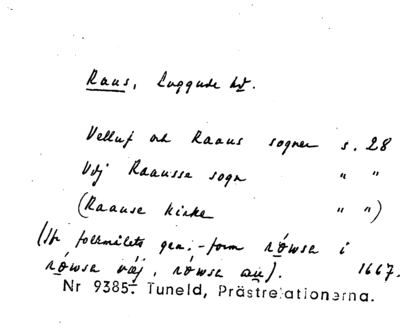 Raus, Luggude hd.
Velluf och Raaus sogner s. 28
Udj Raausse sogn " "
(Raause kirke " ")
(Jfr folkmålets gen.-form rówsa i
rówsa väj, rówsa au). 1667.
Nr 9385. Tuneld, Prästrelationerna.